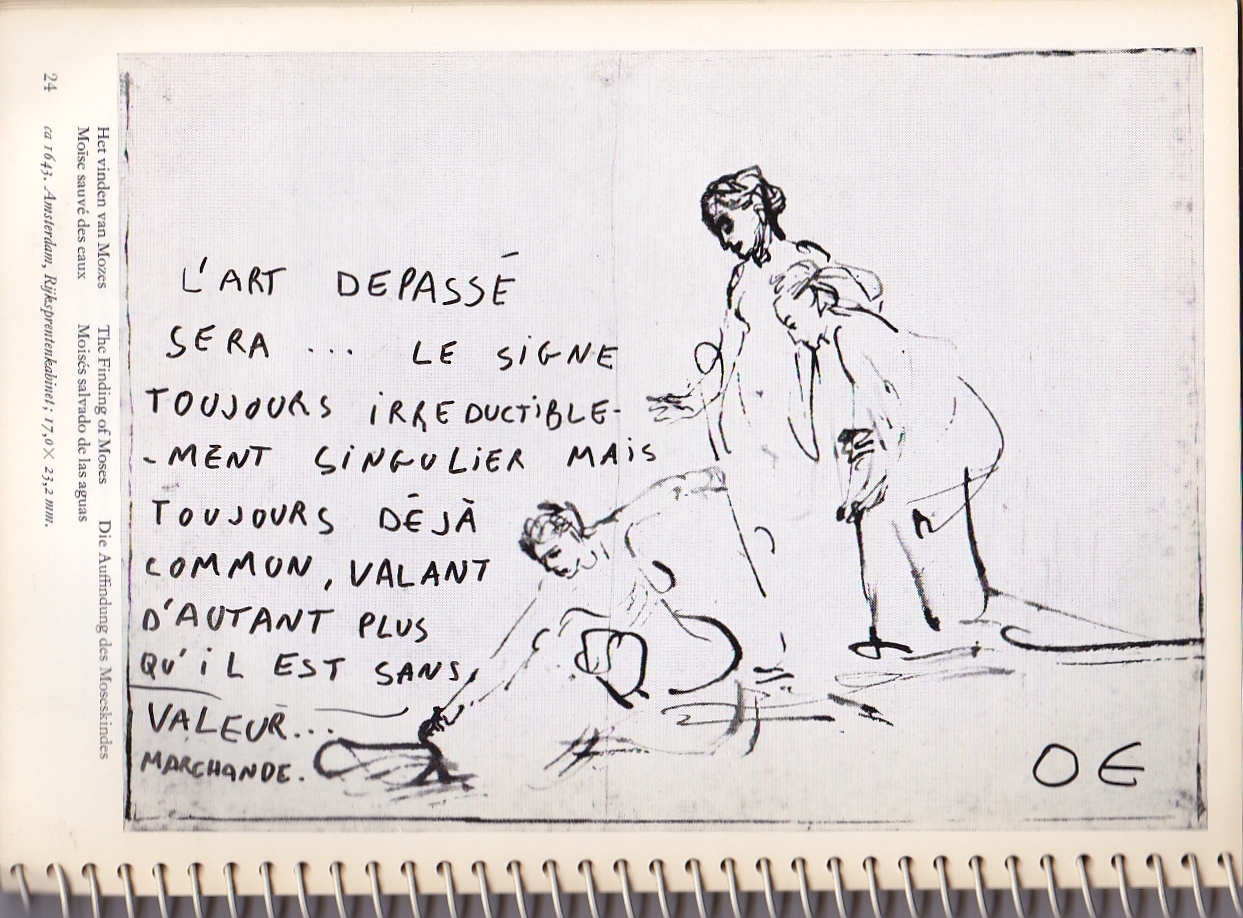 L'ART DEPASSÉ
SERA ... LE SiGNE
TOUJOURS iRREDUCTiBLE-
-MENT SiNGULiER MAiS
TOUJOURS DÉJÀ
COMMUN, VALANT
D'AUTANT PLUS
QU'iL EST SANS
VALEUR...
MARCHANDE.
OE
24
Het vinden van Mozes The Finding of Moses Die Auffindung des Moseskindes
Moïse sauvé des eaux Moisés salvado de las aguas
ca 1643. Amsterdam, Rijksprentenkabinet; 17,0 × 23,2 mm.